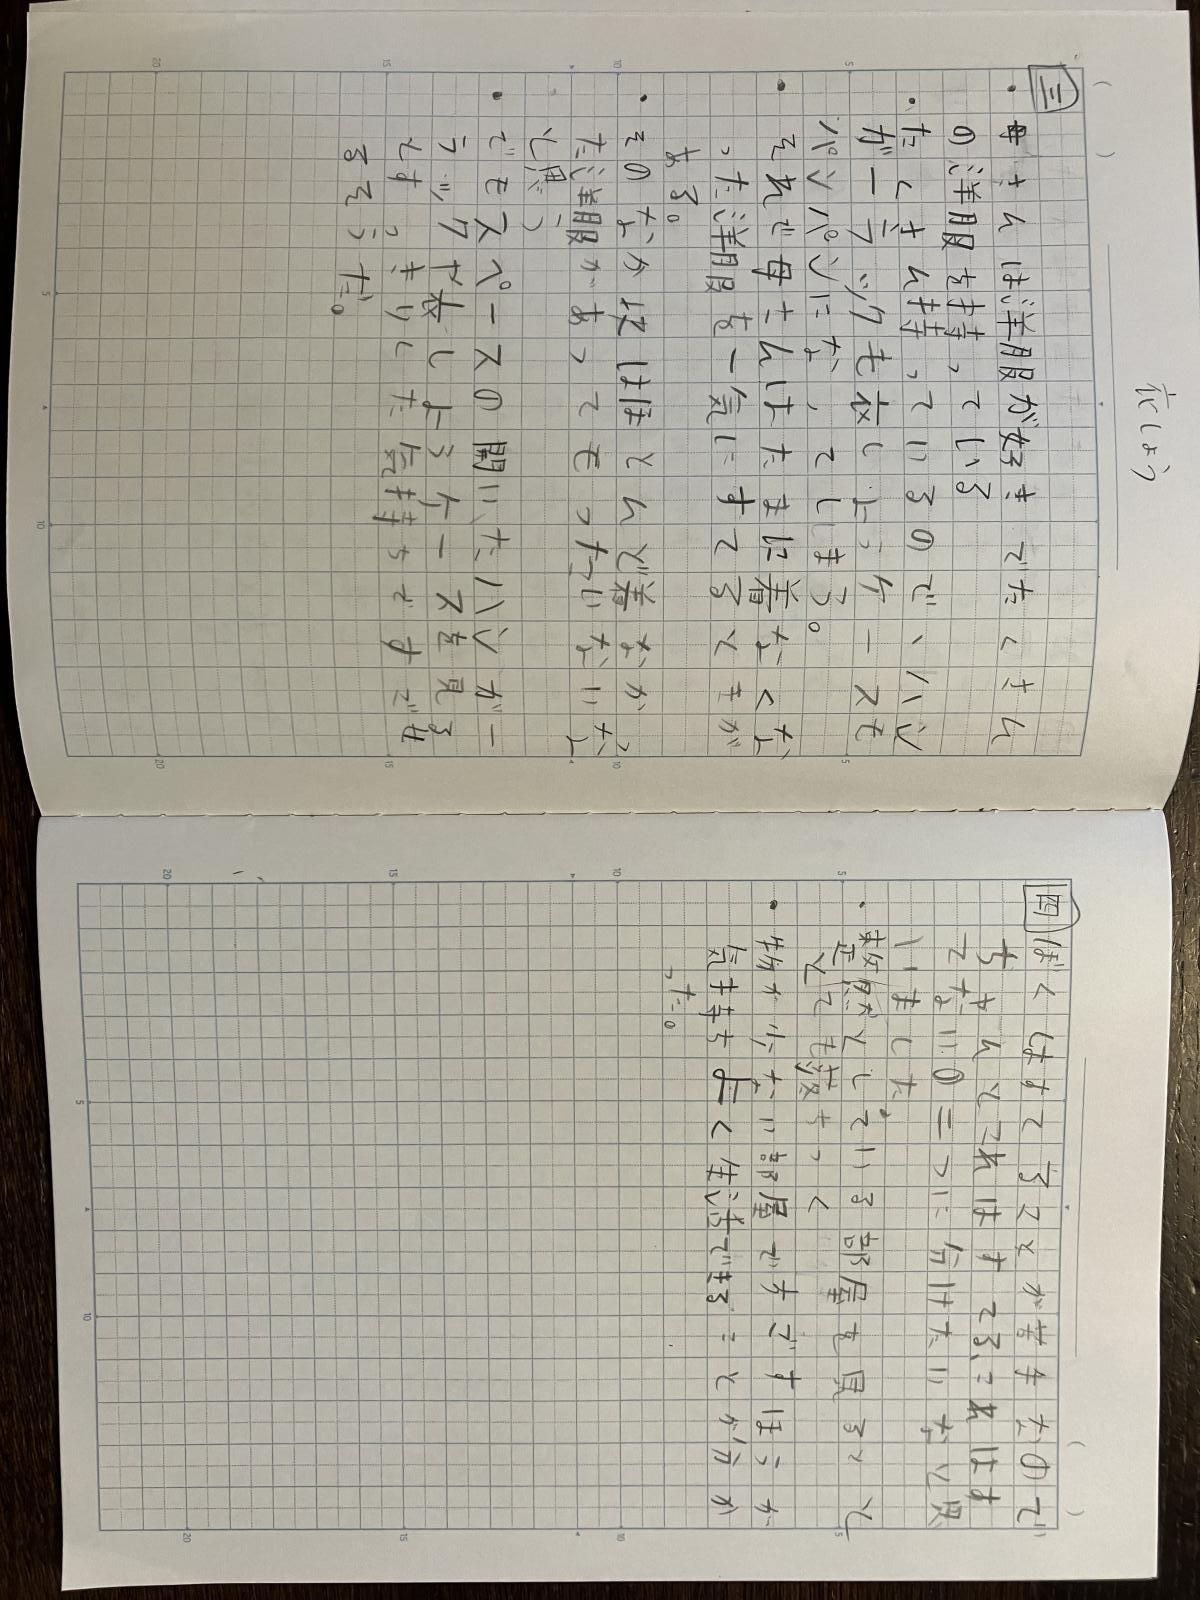 衣しょう
三
・母さんは洋服が好きでたくさん
の洋服を持っている
・たくさん持っているので、ハン
ガーラックも衣しょうケースも
パンパンになってしまう。
・それで母さんはたまに着なくな
った洋服を一気にすてるときが
ある。
・そのなかにはほとんど着なかっ
た洋服があってもったいないな
と思う
・でもスペースの開いたハンガー
ラックや衣しょうケースを見る
とすっきりした気持ちですでき
るそうだ。
四
ぼくはすてることが苦手なので
ちゃんとこれはすてる、これはす
てないの二つに分けたいなと思
いました。
・整然としている部屋を見ると、と
ても
・物が少ない部屋ですごすほうが
気持ちよく生活できることが分か
った。
5
10
15
20
5
10
15
20